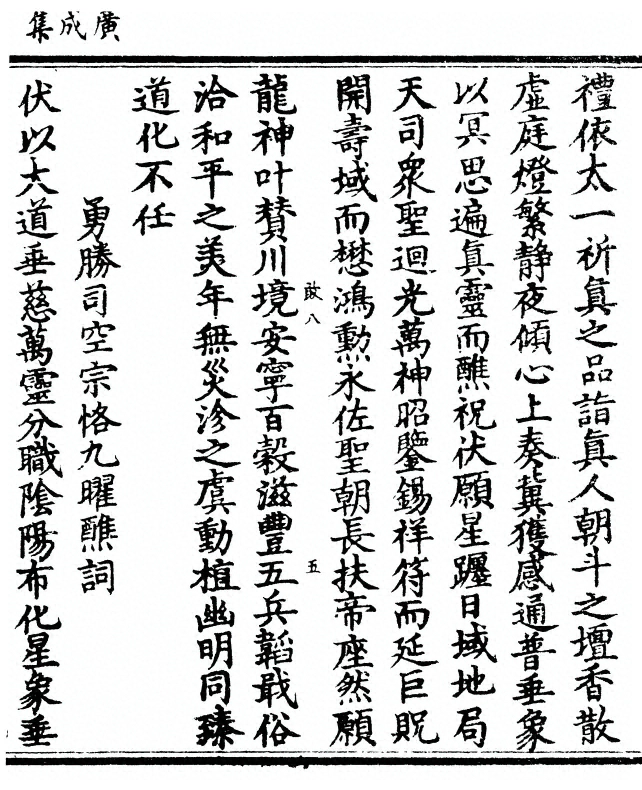 廣成集
禮依太一祈真之品詣真人朝斗之壇香散
虛庭燈繁静夜傾心上奏冀獲感通普垂象
以冥思遍真靈而醮祝伏願星躔日域地局
天司衆聖迴光萬神昭鑒錫祥符而延巨貺
開壽域而懋鴻勲永佐聖朝長扶帝座然願
敢八
五
龍神叶賛川境安寧百穀滋豐五兵韜戢俗
洽和平之美年無災沴之虞動植幽明同臻
道化不任
勇勝司空宗恪九曜醮詞
伏以大道垂慈萬靈分職陰陽布化星象垂